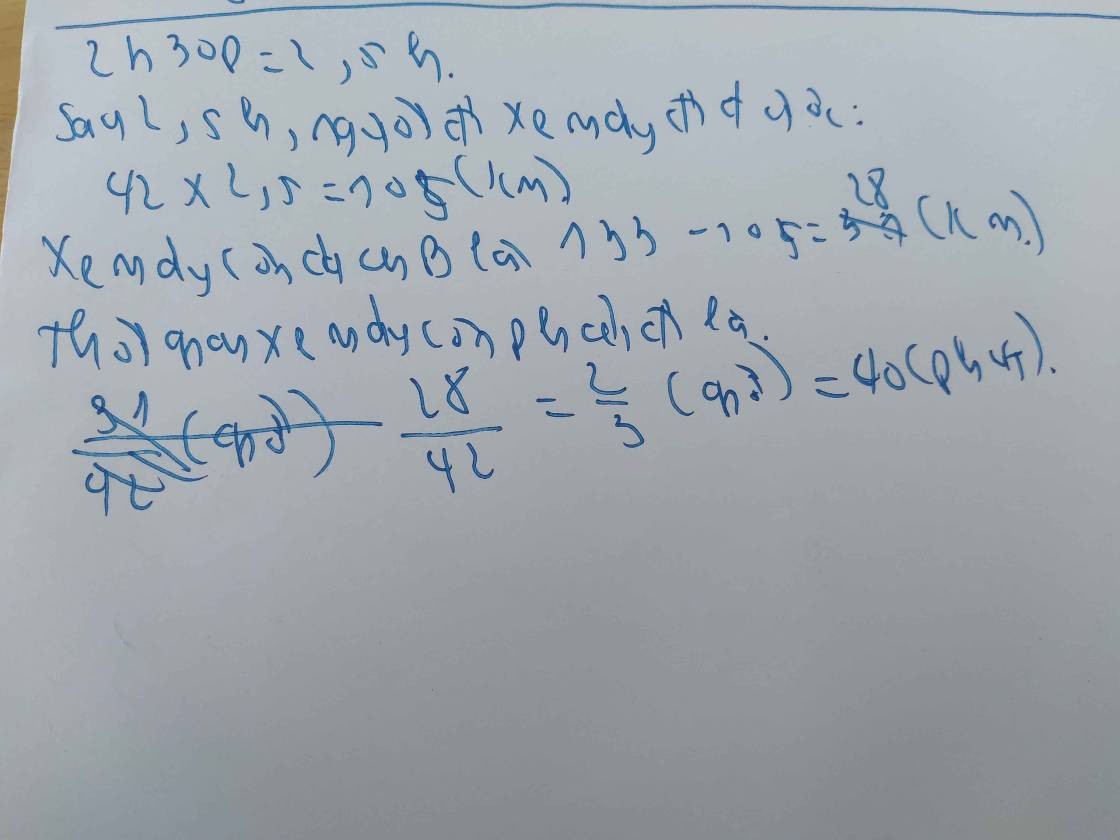 2h30p = 2,5h.
Sau 2,5h, người đi xe máy đi được:
42 x 2,5 = 105 (km)
Xe máy còn cách B là 133 - 105 = 28 (km)
Thời gian xe máy còn phải đi là.
31/42 (giờ) 28/42 = 2/3 (giờ) = 40 (phút).